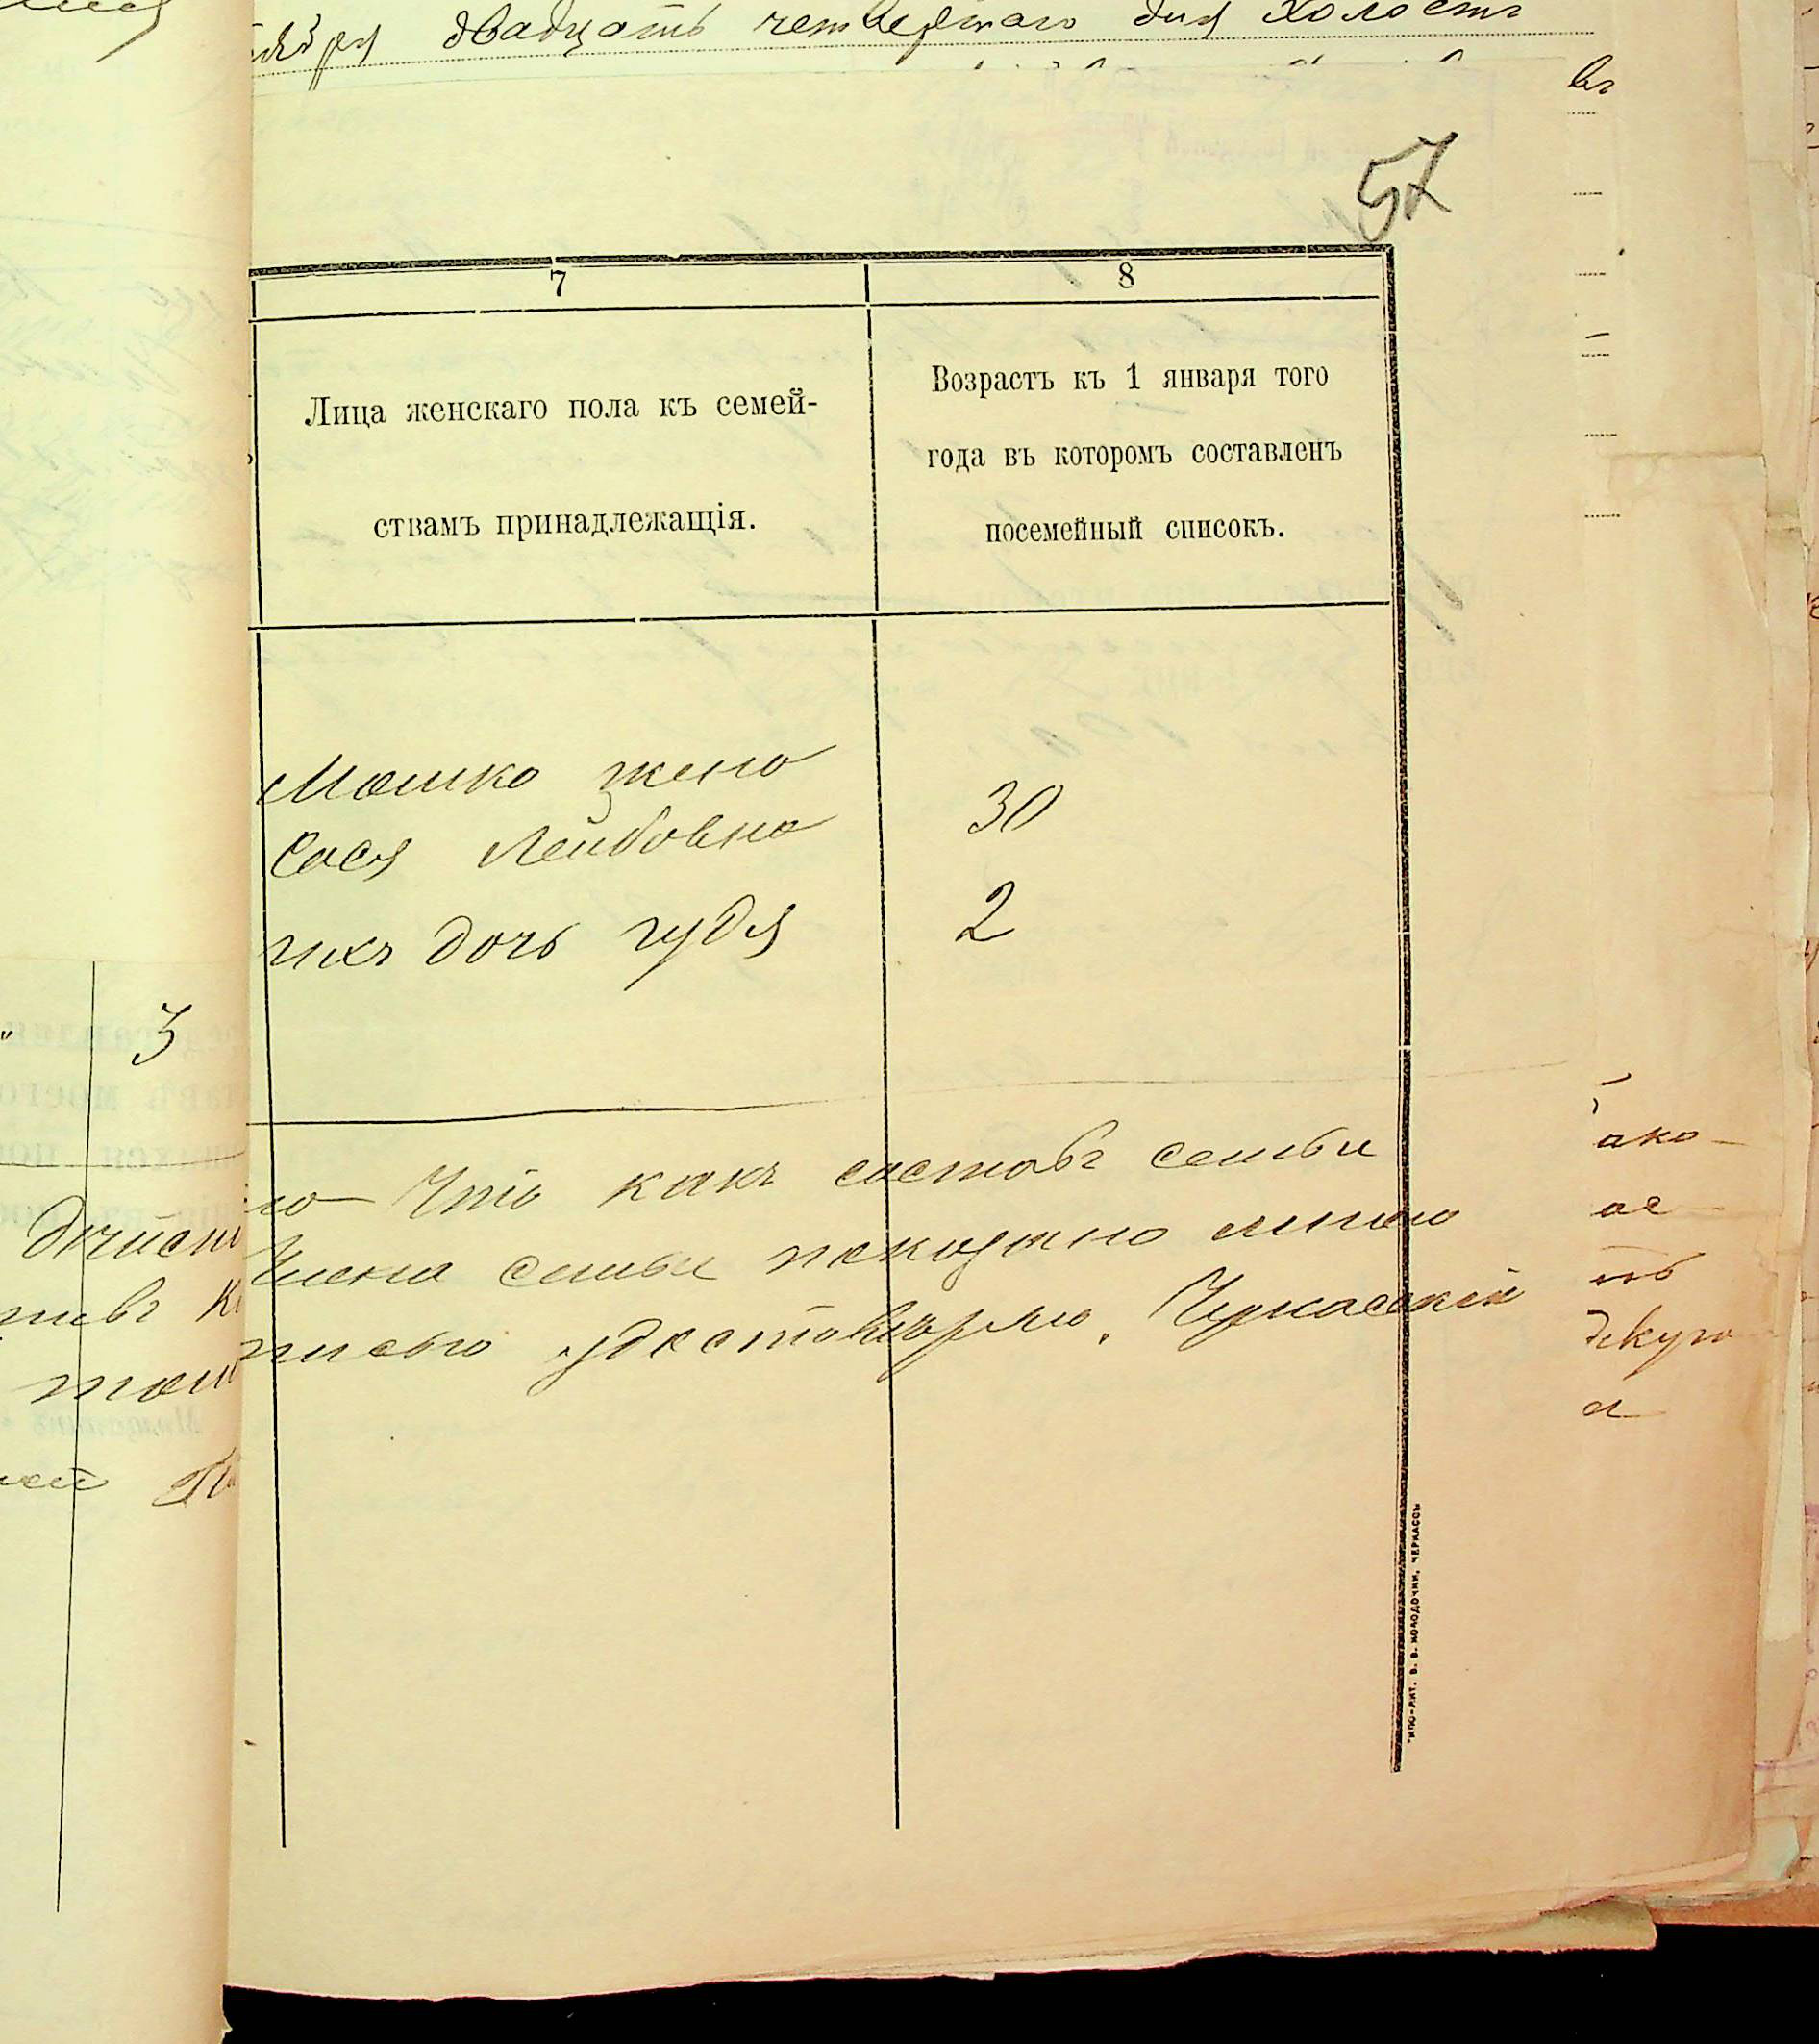 двадцать четвертаго дня холостъ
въ
57
7
8
Лица женскаго пола къ семей-
ствамъ принадлежащія.
Возрастъ къ 1 января того
года въ которомъ составленъ
посемейный списокъ.
Мошко жена
Сося Лейбовна
30
ихъ дочь Гудя
2
3
что какъ составъ семьи
члена семьи показано мною
писью удостовѣряю. Черкасскій
ТИПО-ЛИТ. В. В. КОЛОДОЧКИ, ЧЕРКАССЫ